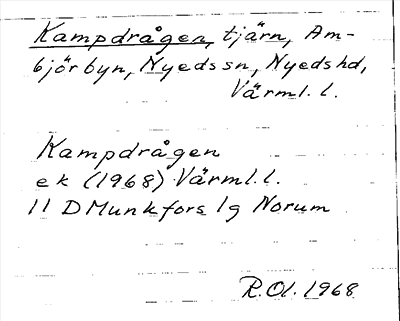 Kampdrågen, tjärn, Am-
björbyn, Nyedssn, Nyedshd,
Värml. l.
Kampdrågen
ek (1968) Värml. l.
11 D Munkfors 1g Norum
R.Ol. 1968